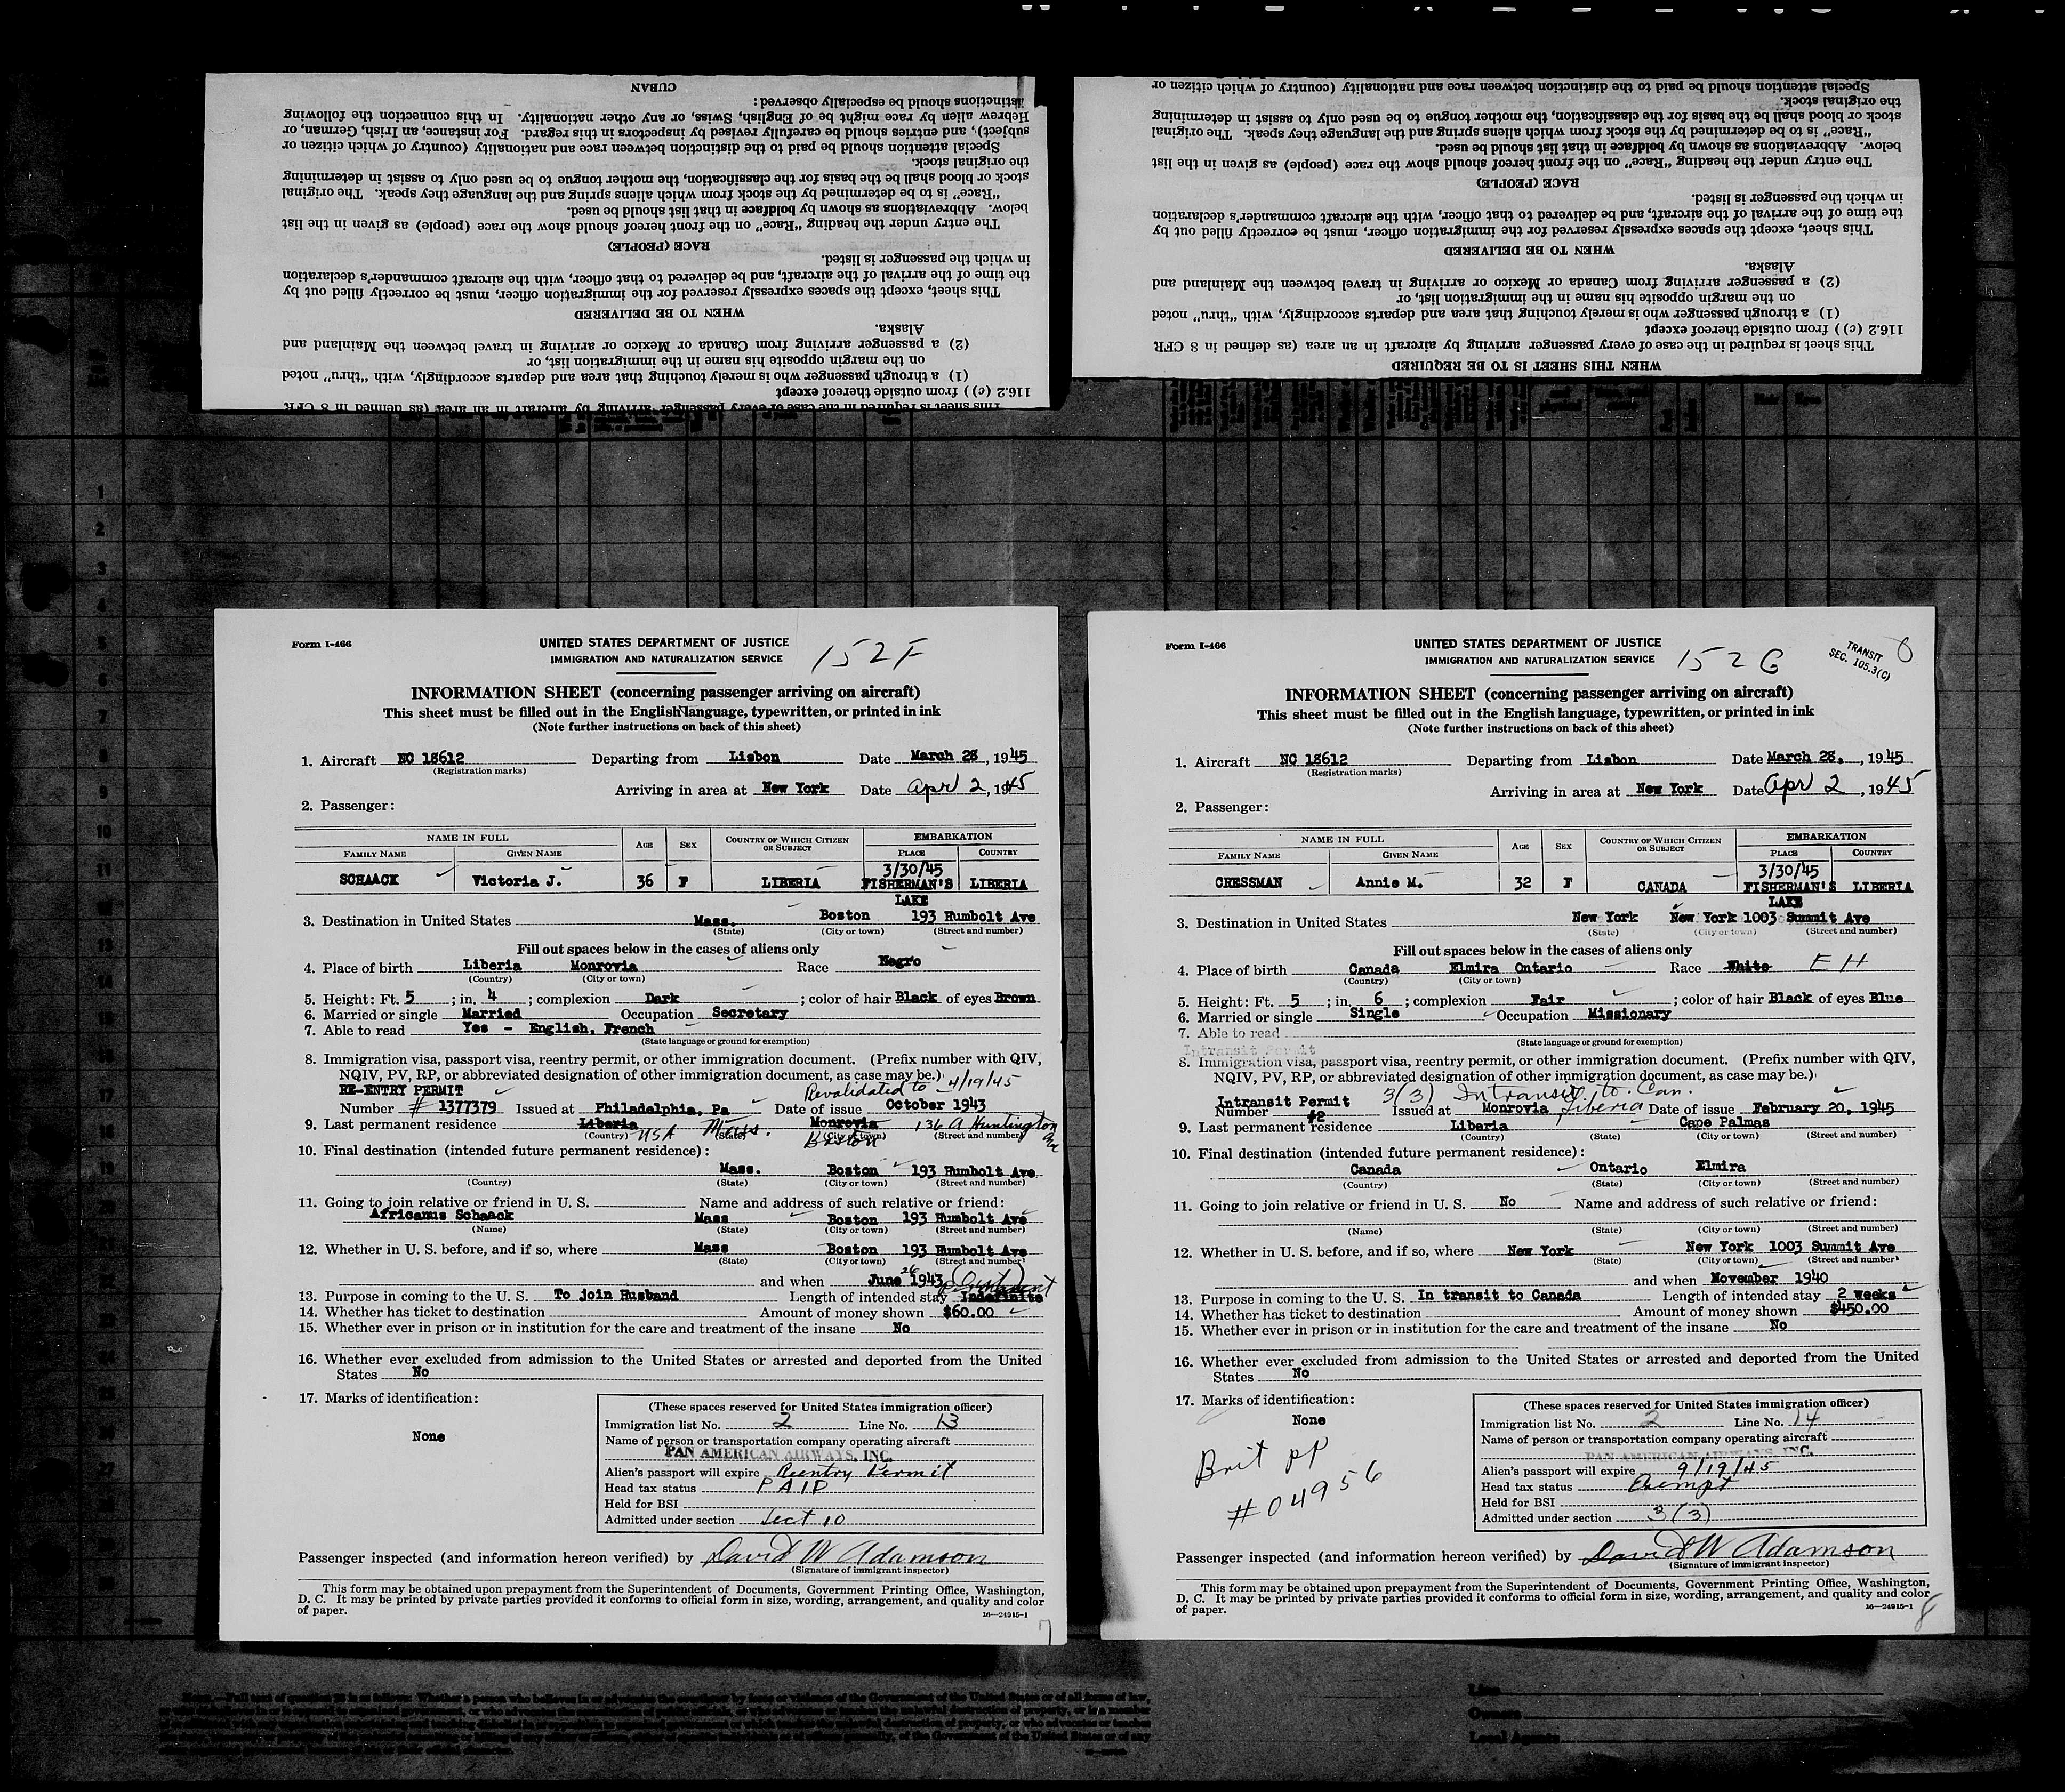 CUBAN
distinctions should be especially observed:
Hebrew alien by race might be of English, Swiss, or any other nationality. In this connection the following
subject), and entries should be carefully revised by inspectors in this regard. For instance, an Irish, German, or
Special attention should be paid to the distinction between race and nationality (country of which citizen or
the original stock.
stock or blood shall be the basis for the classification, the mother tongue to be used only to assist in determining
"Race" is to be determined by the stock from which aliens spring and the language they speak. The original
below. Abbreviations as shown by boldface in that list should be used.
The entry under the heading "Race" on the front hereof should show the race (people) as given in the list
RACE (PEOPLE)
in which the passenger is listed.
the time of the arrival of the aircraft, and be delivered to that officer, with the aircraft commander's declaration
This sheet, except the spaces expressly reserved for the immigration officer, must be correctly filled out by
WHEN TO BE DELIVERED
Alaska.
(2) a passenger arriving from Canada or Mexico or arriving in travel between the Mainland and
on the margin opposite his name in the immigration list, or
(1) a through passenger who is merely touching that area and departs accordingly, with "thru" noted
116.2 (c) ) from outside thereof except
This sheet is required in the case of every passenger arriving by aircraft in an area (as defined in 8 CFR
Special attention should be paid to the distinction between race and nationality (country of which citizen or
the original stock.
stock or blood shall be the basis for the classification, the mother tongue to be used only to assist in determining
"Race" is to be determined by the stock from which aliens spring and the language they speak. The original
below. Abbreviations as shown by boldface in that list should be used.
The entry under the heading "Race" on the front hereof should show the race (people) as given in the list
RACE (PEOPLE)
in which the passenger is listed.
the time of the arrival of the aircraft, and be delivered to that officer, with the aircraft commander's declaration
This sheet, except the spaces expressly reserved for the immigration officer, must be correctly filled out by
WHEN TO BE DELIVERED
Alaska.
(2) a passenger arriving from Canada or Mexico or arriving in travel between the Mainland and
on the margin opposite his name in the immigration list, or
(1) a through passenger who is merely touching that area and departs accordingly, with "thru" noted
116.2 (c) ) from outside thereof except
This sheet is required in the case of every passenger arriving by aircraft in an area (as defined in 8 CFR
WHEN THIS SHEET IS TO BE REQUIRED
Form I-466
UNITED STATES DEPARTMENT OF JUSTICE
IMMIGRATION AND NATURALIZATION SERVICE
152F
INFORMATION SHEET (concerning passenger arriving on aircraft)
This sheet must be filled out in the English language, typewritten, or printed in ink
(Note further instructions on back of this sheet)
1. Aircraft NC 18612 Departing from Lisbon Date March 28, 1945
(Registration marks)
Arriving in area at New York Date Apr 2, 1945
2. Passenger:
NAME IN FULL AGE SEX COUNTRY OF WHICH CITIZEN OR SUBJECT EMBARKATION
FAMILY NAME GIVEN NAME PLACE COUNTRY
3/30/45
SCHAACK Victoria J. 36 F LIBERIA FISHERMAN'S LIBERIA
LAKE
3. Destination in United States Mass. Boston 193 Humbolt Ave
(State) (City or town) (Street and number)
Fill out spaces below in the cases of aliens only
4. Place of birth Liberia Monrovia Race Negro
(Country) (City or town)
5. Height: Ft. 5 ; in. 4 ; complexion Dark ; color of hair Black of eyes Brown
6. Married or single Married Occupation Secretary
7. Able to read Yes - English, French
(State language or ground for exemption)
8. Immigration visa, passport visa, reentry permit, or other immigration document. (Prefix number with QIV,
NQIV, PV, RP, or abbreviated designation of other immigration document, as case may be.)
RE-ENTRY PERMIT Revalidated to 4/19/45
Number # 1377379 Issued at Philadelphia, Pa Date of issue October 1943
9. Last permanent residence Liberia USA Mass. Monrovia Boston 136 A Huntington Av
(Country) (State) (City or town) (Street and number)
10. Final destination (intended future permanent residence):
Mass. Boston 193 Humbolt Ave
(Country) (State) (City or town) (Street and number)
11. Going to join relative or friend in U. S. Name and address of such relative or friend:
Africanus Schaack Mass Boston 193 Humbolt Ave
(Name) (State) (City or town) (Street and number)
12. Whether in U. S. before, and if so, where Mass Boston 193 Humbolt Ave
(State) (City or town) (Street and number)
and when June 26 1943
13. Purpose in coming to the U. S. To join Husband Length of intended stay Indefinite Permanent
14. Whether has ticket to destination Amount of money shown $60.00
15. Whether ever in prison or in institution for the care and treatment of the insane No
16. Whether ever excluded from admission to the United States or arrested and deported from the United
States No
17. Marks of identification:
None
(These spaces reserved for United States immigration officer)
Immigration list No. 2 Line No. 13
Name of person or transportation company operating aircraft
PAN AMERICAN AIRWAYS, INC.
Alien's passport will expire Reentry Permit
Head tax status PAID
Held for BSI
Admitted under section Sect 10
Passenger inspected (and information hereon verified) by David W Adamson
(Signature of immigrant inspector)
This form may be obtained upon prepayment from the Superintendent of Documents, Government Printing Office, Washington,
D. C. It may be printed by private parties provided it conforms to official form in size, wording, arrangement, and quality and color
of paper.
16—24915-1
7
Form I-466
UNITED STATES DEPARTMENT OF JUSTICE
IMMIGRATION AND NATURALIZATION SERVICE
152G
TRANSIT
SEC. 105.3(C)
INFORMATION SHEET (concerning passenger arriving on aircraft)
This sheet must be filled out in the English language, typewritten, or printed in ink
(Note further instructions on back of this sheet)
1. Aircraft NC 18612 Departing from Lisbon Date March 28, , 1945
(Registration marks)
Arriving in area at New York Date Apr 2, 1945
2. Passenger:
NAME IN FULL AGE SEX COUNTRY OF WHICH CITIZEN OR SUBJECT EMBARKATION
FAMILY NAME GIVEN NAME PLACE COUNTRY
3/30/45
CRESSMAN Annie M. 32 F CANADA FISHERMAN'S LIBERIA
LAKE
3. Destination in United States New York New York 1003 Summit Ave
(State) (City or town) (Street and number)
Fill out spaces below in the cases of aliens only
4. Place of birth Canada Elmira Ontario Race White EH
(Country) (City or town)
5. Height: Ft. 5 ; in. 6 ; complexion Fair ; color of hair Black of eyes Blue
6. Married or single Single Occupation Missionary
7. Able to read
(State language or ground for exemption)
Intransit Permit
8. Immigration visa, passport visa, reentry permit, or other immigration document. (Prefix number with QIV,
NQIV, PV, RP, or abbreviated designation of other immigration document, as case may be.)
Intransit Permit 3(3) Intransit to Can.
Number #2 Issued at Monrovia Liberia Date of issue February 20, 1945
9. Last permanent residence Liberia Cape Palmas
(Country) (State) (City or town) (Street and number)
10. Final destination (intended future permanent residence):
Canada Ontario Elmira
(Country) (State) (City or town) (Street and number)
11. Going to join relative or friend in U. S. No Name and address of such relative or friend:
(Name) (State) (City or town) (Street and number)
12. Whether in U. S. before, and if so, where New York New York 1003 Summit Ave
(State) (City or town) (Street and number)
and when November 1940
13. Purpose in coming to the U. S. In transit to Canada Length of intended stay 2 weeks
14. Whether has ticket to destination Amount of money shown $450.00
15. Whether ever in prison or in institution for the care and treatment of the insane No
16. Whether ever excluded from admission to the United States or arrested and deported from the United
States No
17. Marks of identification:
None
Brit PP
#04956
(These spaces reserved for United States immigration officer)
Immigration list No. 2 Line No. 14
Name of person or transportation company operating aircraft
PAN AMERICAN AIRWAYS, INC.
Alien's passport will expire 9/19/45
Head tax status Exempt
Held for BSI
Admitted under section 3(3)
Passenger inspected (and information hereon verified) by David W Adamson
(Signature of immigrant inspector)
This form may be obtained upon prepayment from the Superintendent of Documents, Government Printing Office, Washington,
D. C. It may be printed by private parties provided it conforms to official form in size, wording, arrangement, and quality and color
of paper.
16—24915-1
8
1
2
3
4
5
6
7
8
9
10
11
Line
Owners
Local Agents